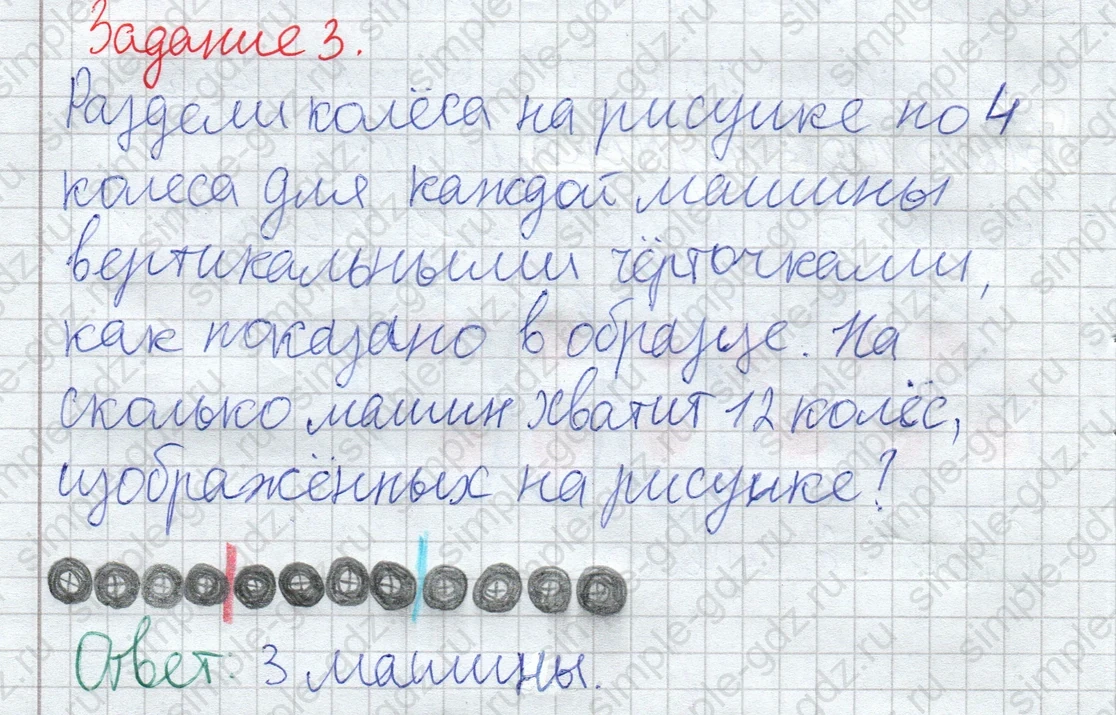 Задание 3.
Раздели колёса на рисунке по 4
колеса для каждой машины
вертикальными чёрточками,
как показано в образце. На
сколько машин хватит 12 колёс,
изображённых на рисунке?
Ответ: 3 машины.
simple-gdz.ru